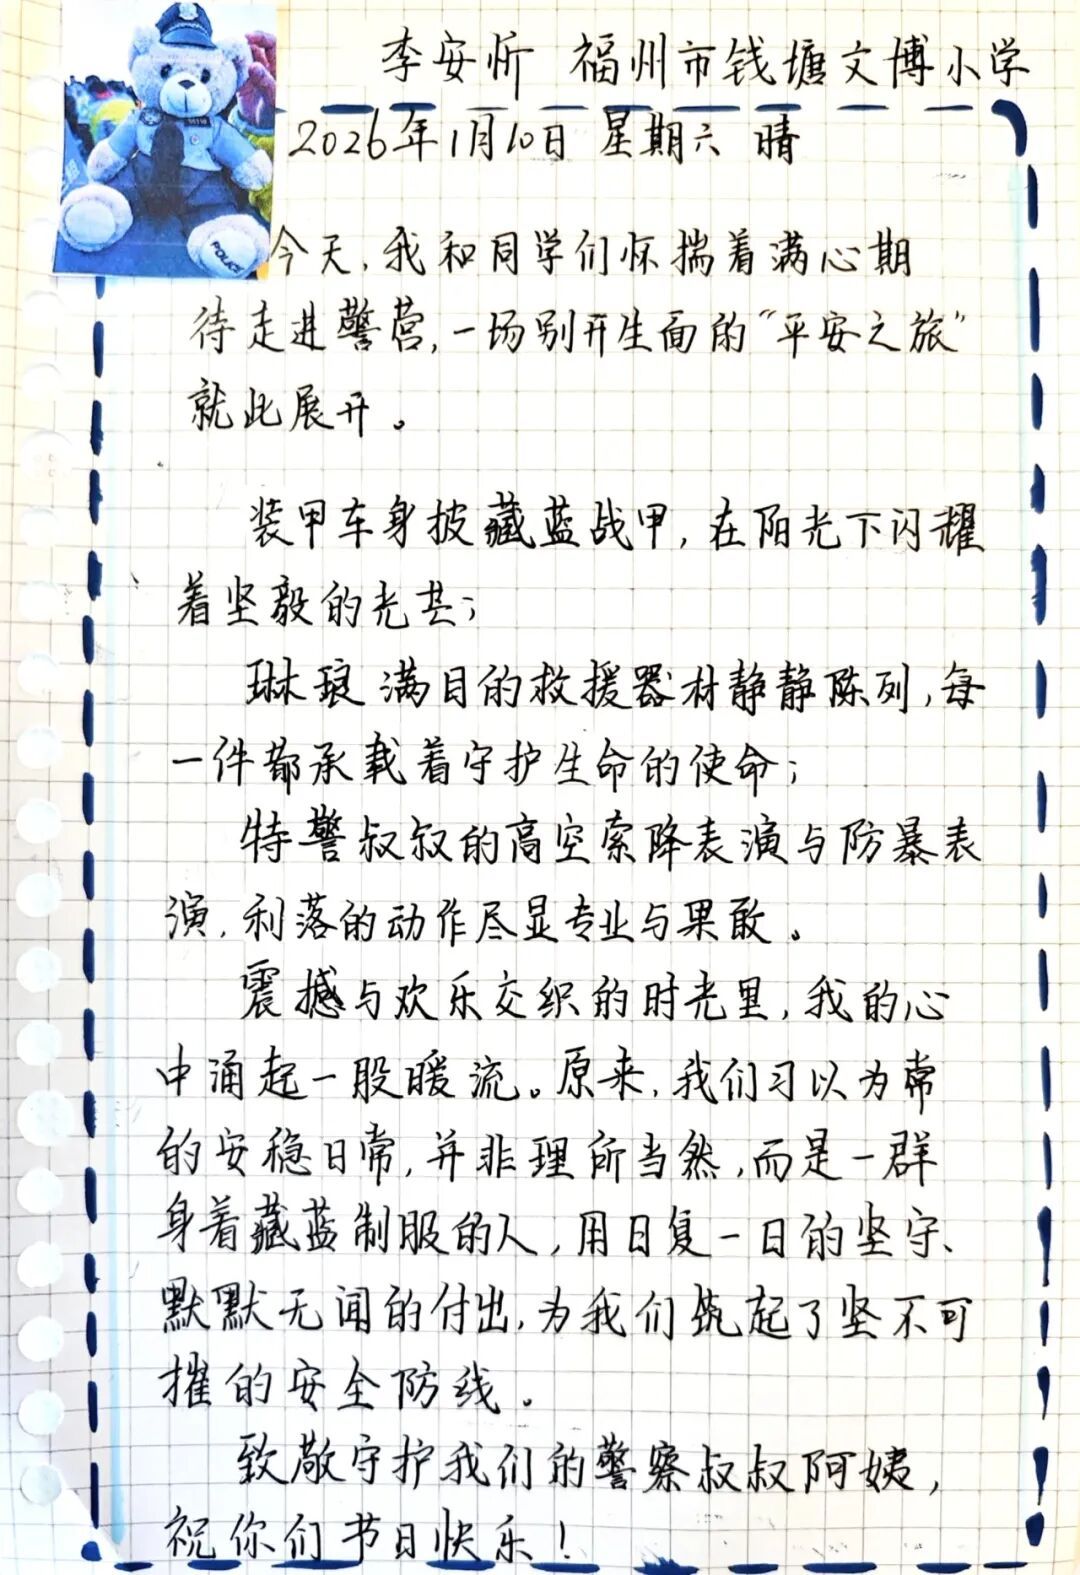 李安忻 福州市钱塘文博小学
2026年1月10日 星期六 晴
POLICE
今天,我和同学们怀揣着满心期
待走进警营,一场别开生面的“平安之旅”
就此展开。
装甲车身披藏蓝战甲,在阳光下闪耀
着坚毅的光芒;
琳琅满目的救援器材静静陈列,每
一件都承载着守护生命的使命;
特警叔叔的高空索降表演与防暴表
演,利落的动作尽显专业与果敢。
震撼与欢乐交织的时光里,我的心
中涌起一股暖流。原来,我们习以为常
的安稳日常,并非理所当然,而是一群
身着藏蓝制服的人,用日复一日的坚守、
默默无闻的付出,为我们筑起了坚不可
摧的安全防线。
致敬守护我们的警察叔叔阿姨,
祝你们节日快乐!